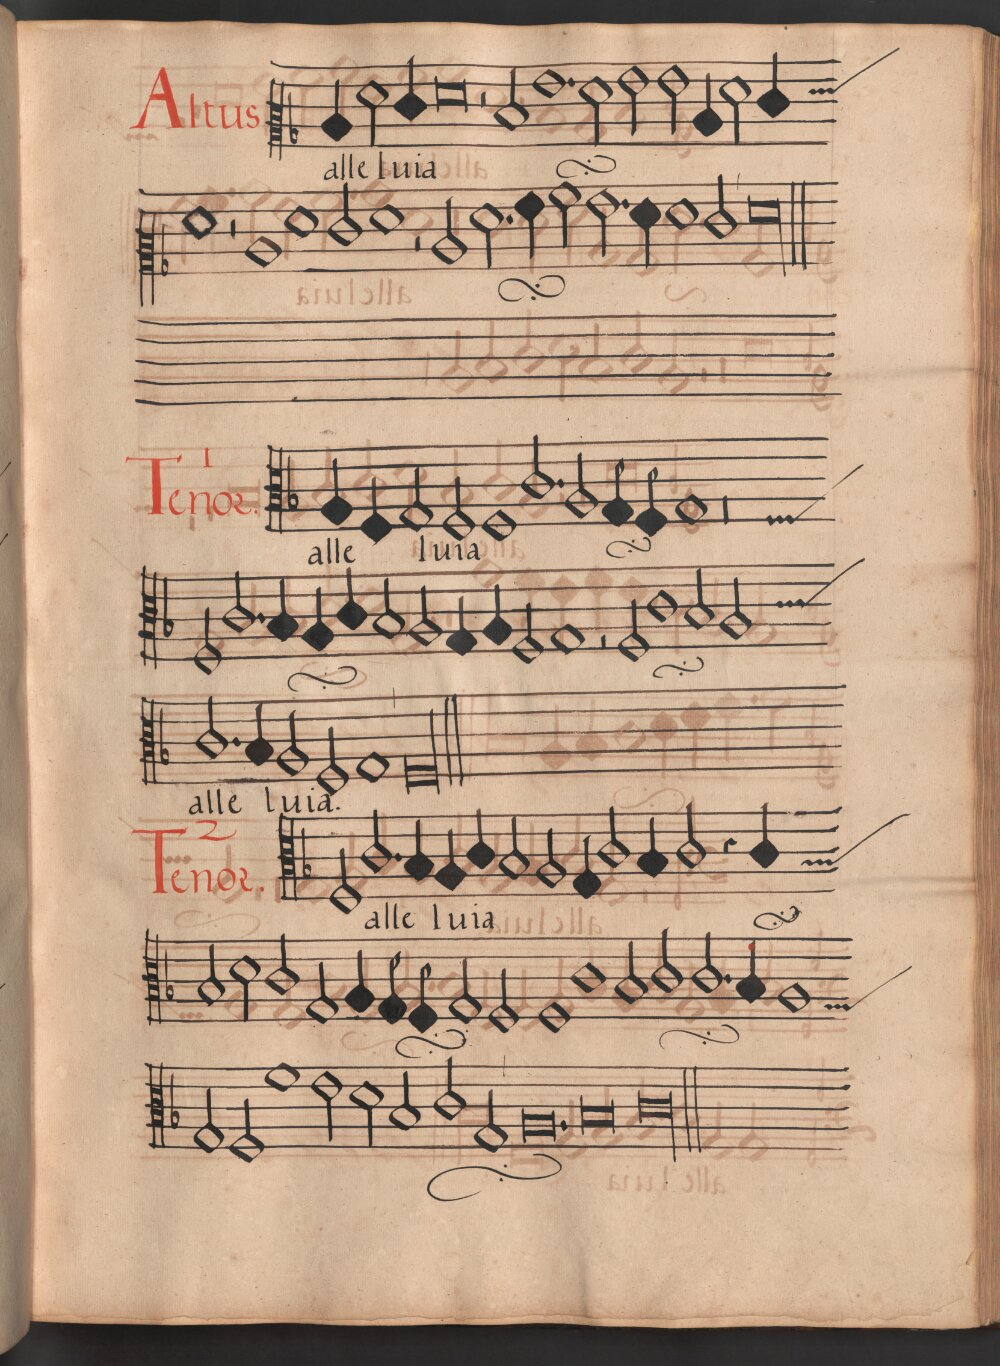 Altus
alle luia
Tenor. 1
alle luia
alle luia.
Tenor. 2
alle luia